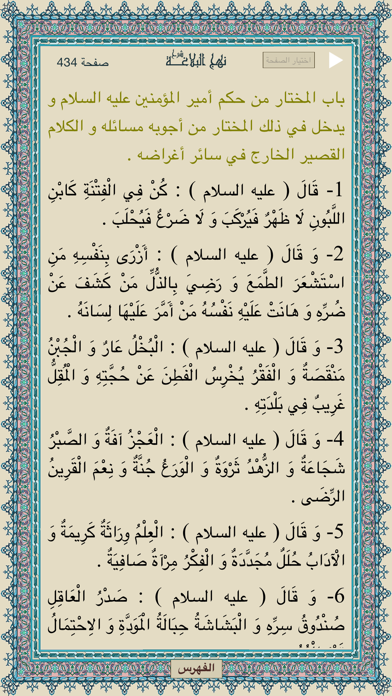 صفحة 434
نهج البلاغة
اختيار الصفحة
باب المختار من حكم أمير المؤمنين عليه السلام و
يدخل في ذلك المختار من أجوبه مسائله و الكلام
القصير الخارج في سائر أغراضه .
1- قَالَ ( عليه السلام ) : كُنْ فِي الْفِتْنَةِ كَابْنِ
اللَّبُونِ لَا ظَهْرٌ فَيُرْكَبَ وَ لَا ضَرْعٌ فَيُحْلَبَ .
2- وَ قَالَ ( عليه السلام ) : أَزْرَى بِنَفْسِهِ مَنِ
اسْتَشْعَرَ الطَّمَعَ وَ رَضِيَ بِالذُّلِّ مَنْ كَشَفَ عَنْ
ضُرِّهِ وَ هَانَتْ عَلَيْهِ نَفْسُهُ مَنْ أَمَّرَ عَلَيْهَا لِسَانَهُ .
3- وَ قَالَ ( عليه السلام ) : الْبُخْلُ عَارٌ وَ الْجُبْنُ
مَنْقَصَةٌ وَ الْفَقْرُ يُخْرِسُ الْفَطِنَ عَنْ حُجَّتِهِ وَ الْمُقِلُّ
غَرِيبٌ فِي بَلْدَتِهِ .
4- وَ قَالَ ( عليه السلام ) : الْعَجْزُ آفَةٌ وَ الصَّبْرُ
شَجَاعَةٌ وَ الزُّهْدُ ثَرْوَةٌ وَ الْوَرَعُ جُنَّةٌ وَ نِعْمَ الْقَرِينُ
الرِّضَى .
5- وَ قَالَ ( عليه السلام ) : الْعِلْمُ وِرَاثَةٌ كَرِيمَةٌ وَ
الْآدَابُ حُلَلٌ مُجَدَّدَةٌ وَ الْفِكْرُ مِرْآةٌ صَافِيَةٌ .
6- وَ قَالَ ( عليه السلام ) : صَدْرُ الْعَاقِلِ
صُنْدُوقُ سِرِّهِ وَ الْبَشَاشَةُ حِبَالَةُ الْمَوَدَّةِ وَ الِاحْتِمَالُ
الفهرس